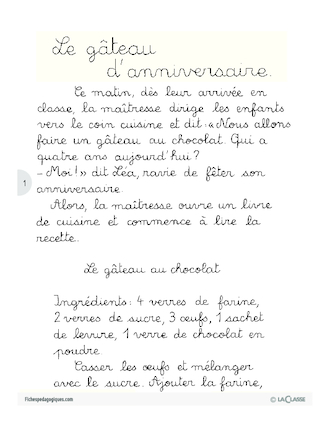 Le gâteau
d'anniversaire.
Ce matin, dès leur arrivée en
classe, la maîtresse dirige les enfants
vers le coin cuisine et dit : « Nous allons
faire un gâteau au chocolat. Qui a
quatre ans aujourd'hui ?
- Moi ! » dit Léa, ravie de fêter son
anniversaire.
1
Alors, la maîtresse ouvre un livre
de cuisine et commence à lire la
recette.
Le gâteau au chocolat
Ingrédients : 4 verres de farine,
2 verres de sucre, 3 œufs, 1 sachet
de levure, 1 verre de chocolat en
poudre
Casser les œufs et mélanger
avec le sucre. Ajouter la farine,
Fichespedagogiques.com
© LACLASSE